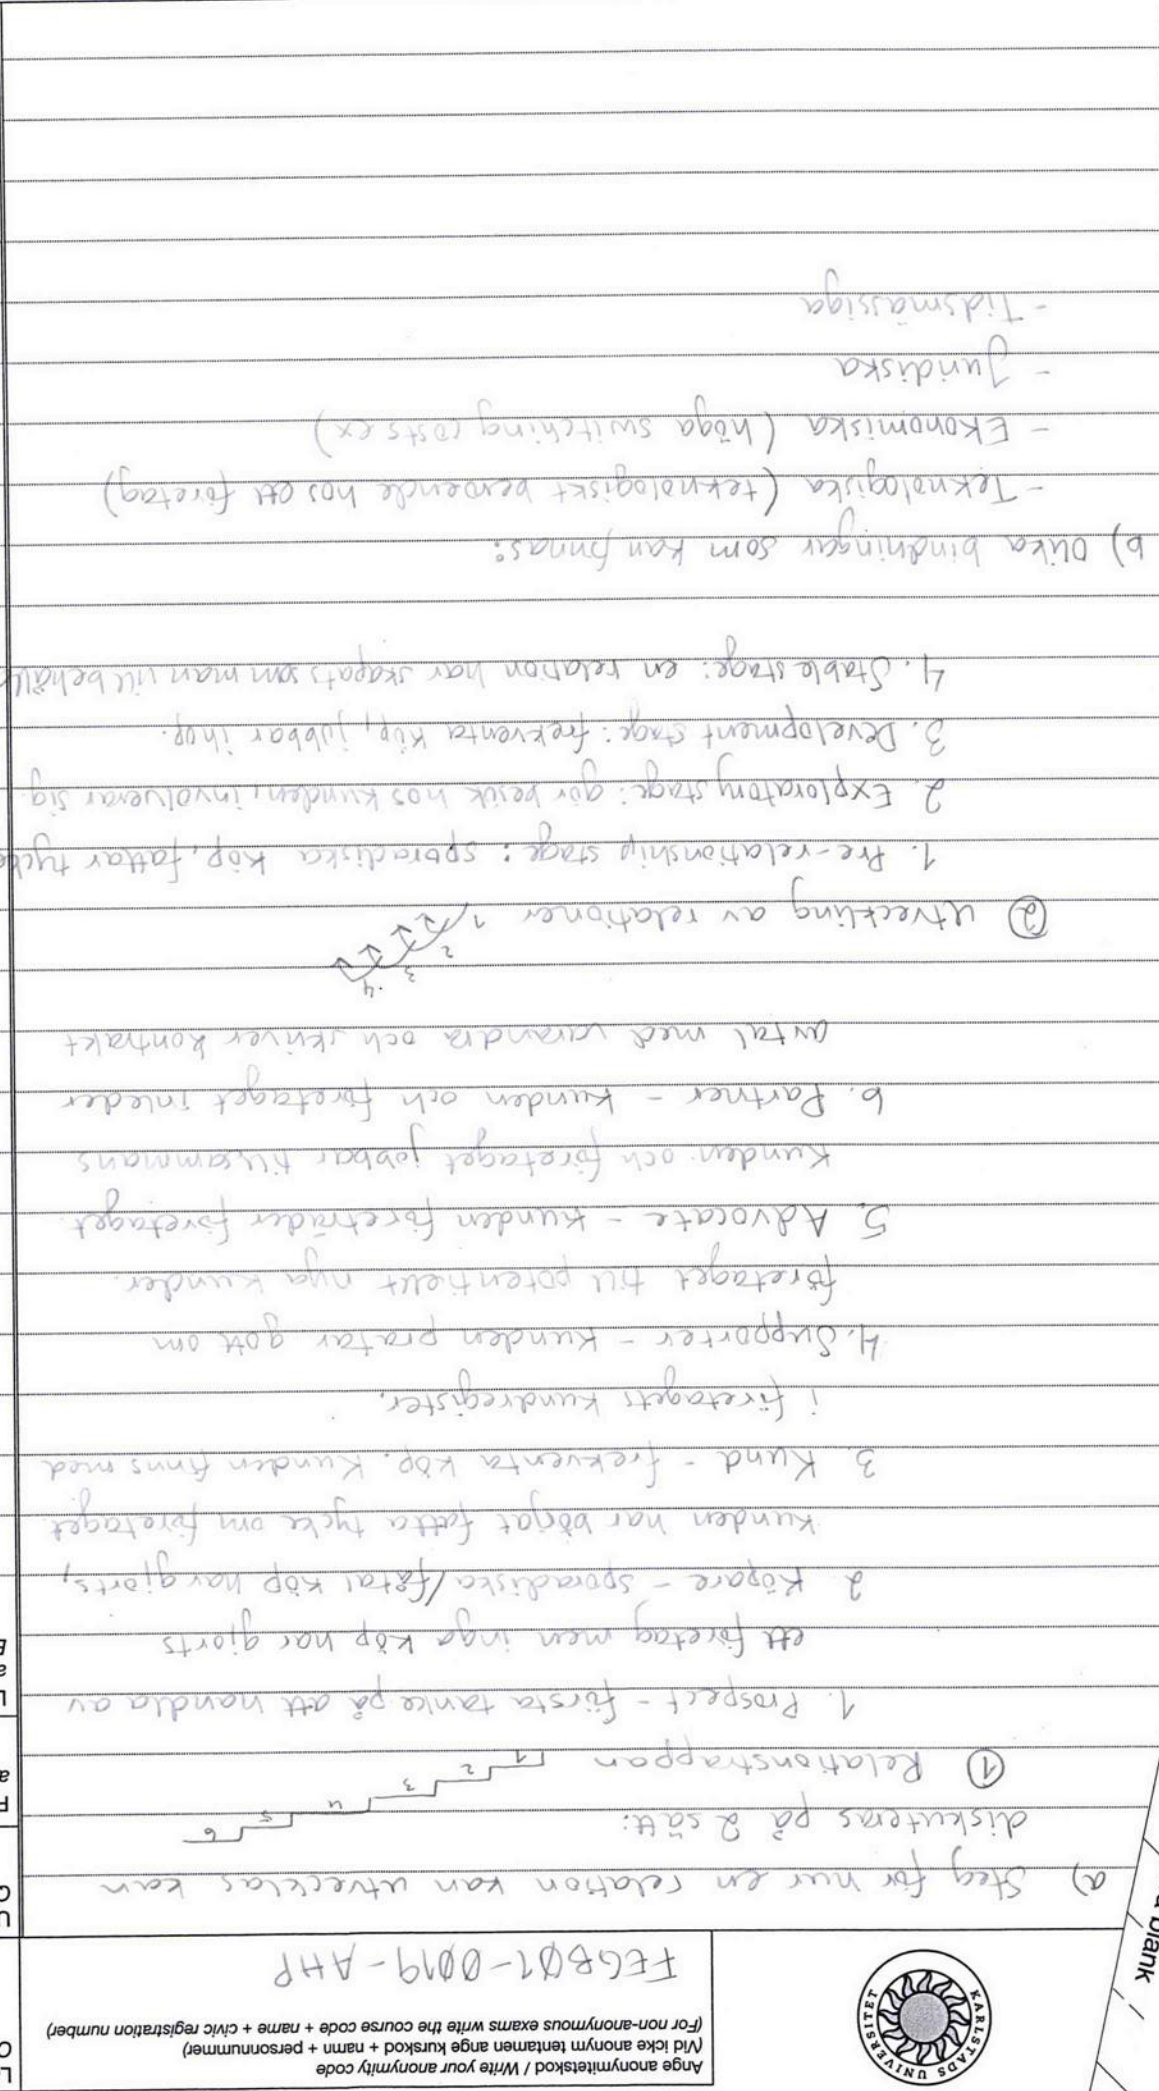 a blank
KARLSTADS UNIVERSITET
Ange anonymitetskod / Write your anonymity code
(Vid icke anonym tentamen ange kurskod + namn + personnummer)
(For non-anonymous exams write the course code + name + civic registration number)
FEGB01-0019-AHP
a) Steg för hur en relation kan utvecklas kan
diskuteras på 2 sätt:
① Relationstrappan 1 2 3 4 5 6
1. Prospect - första tanke på att handla av
ett företag men inga köp har gjorts
2 Köpare - sporadiska/fåtal köp har gjorts,
kunden har börjat fatta tycke om företaget.
3 Kund - frekventa köp. Kunden finns med
i företagets kundregister.
4. Supporter - kunden pratar gott om
företaget till potentiellt nya kunder.
5. Advocate - kunden företräder företaget.
Kunden och företaget jobbar tillsammans
6. Partner - kunden och företaget inleder
avtal med varandra och skriver kontrakt
② Utveckling av relationer 1 2 3 4
1. Pre-relationship stage: sporadiska köp, fattar tycke
2. Exploratory stage: gör besök hos kunden, involverar sig
3. Development stage: frekventa köp, jobbar ihop.
4. Stable stage: en relation har skapats som man vill behåll
b) Olika bindningar som kan finnas:
- Teknologiska (teknologiskt beroende hos ett företag)
- Ekonomiska (höga switching costs ex)
- Juridiska
- Tidsmässiga